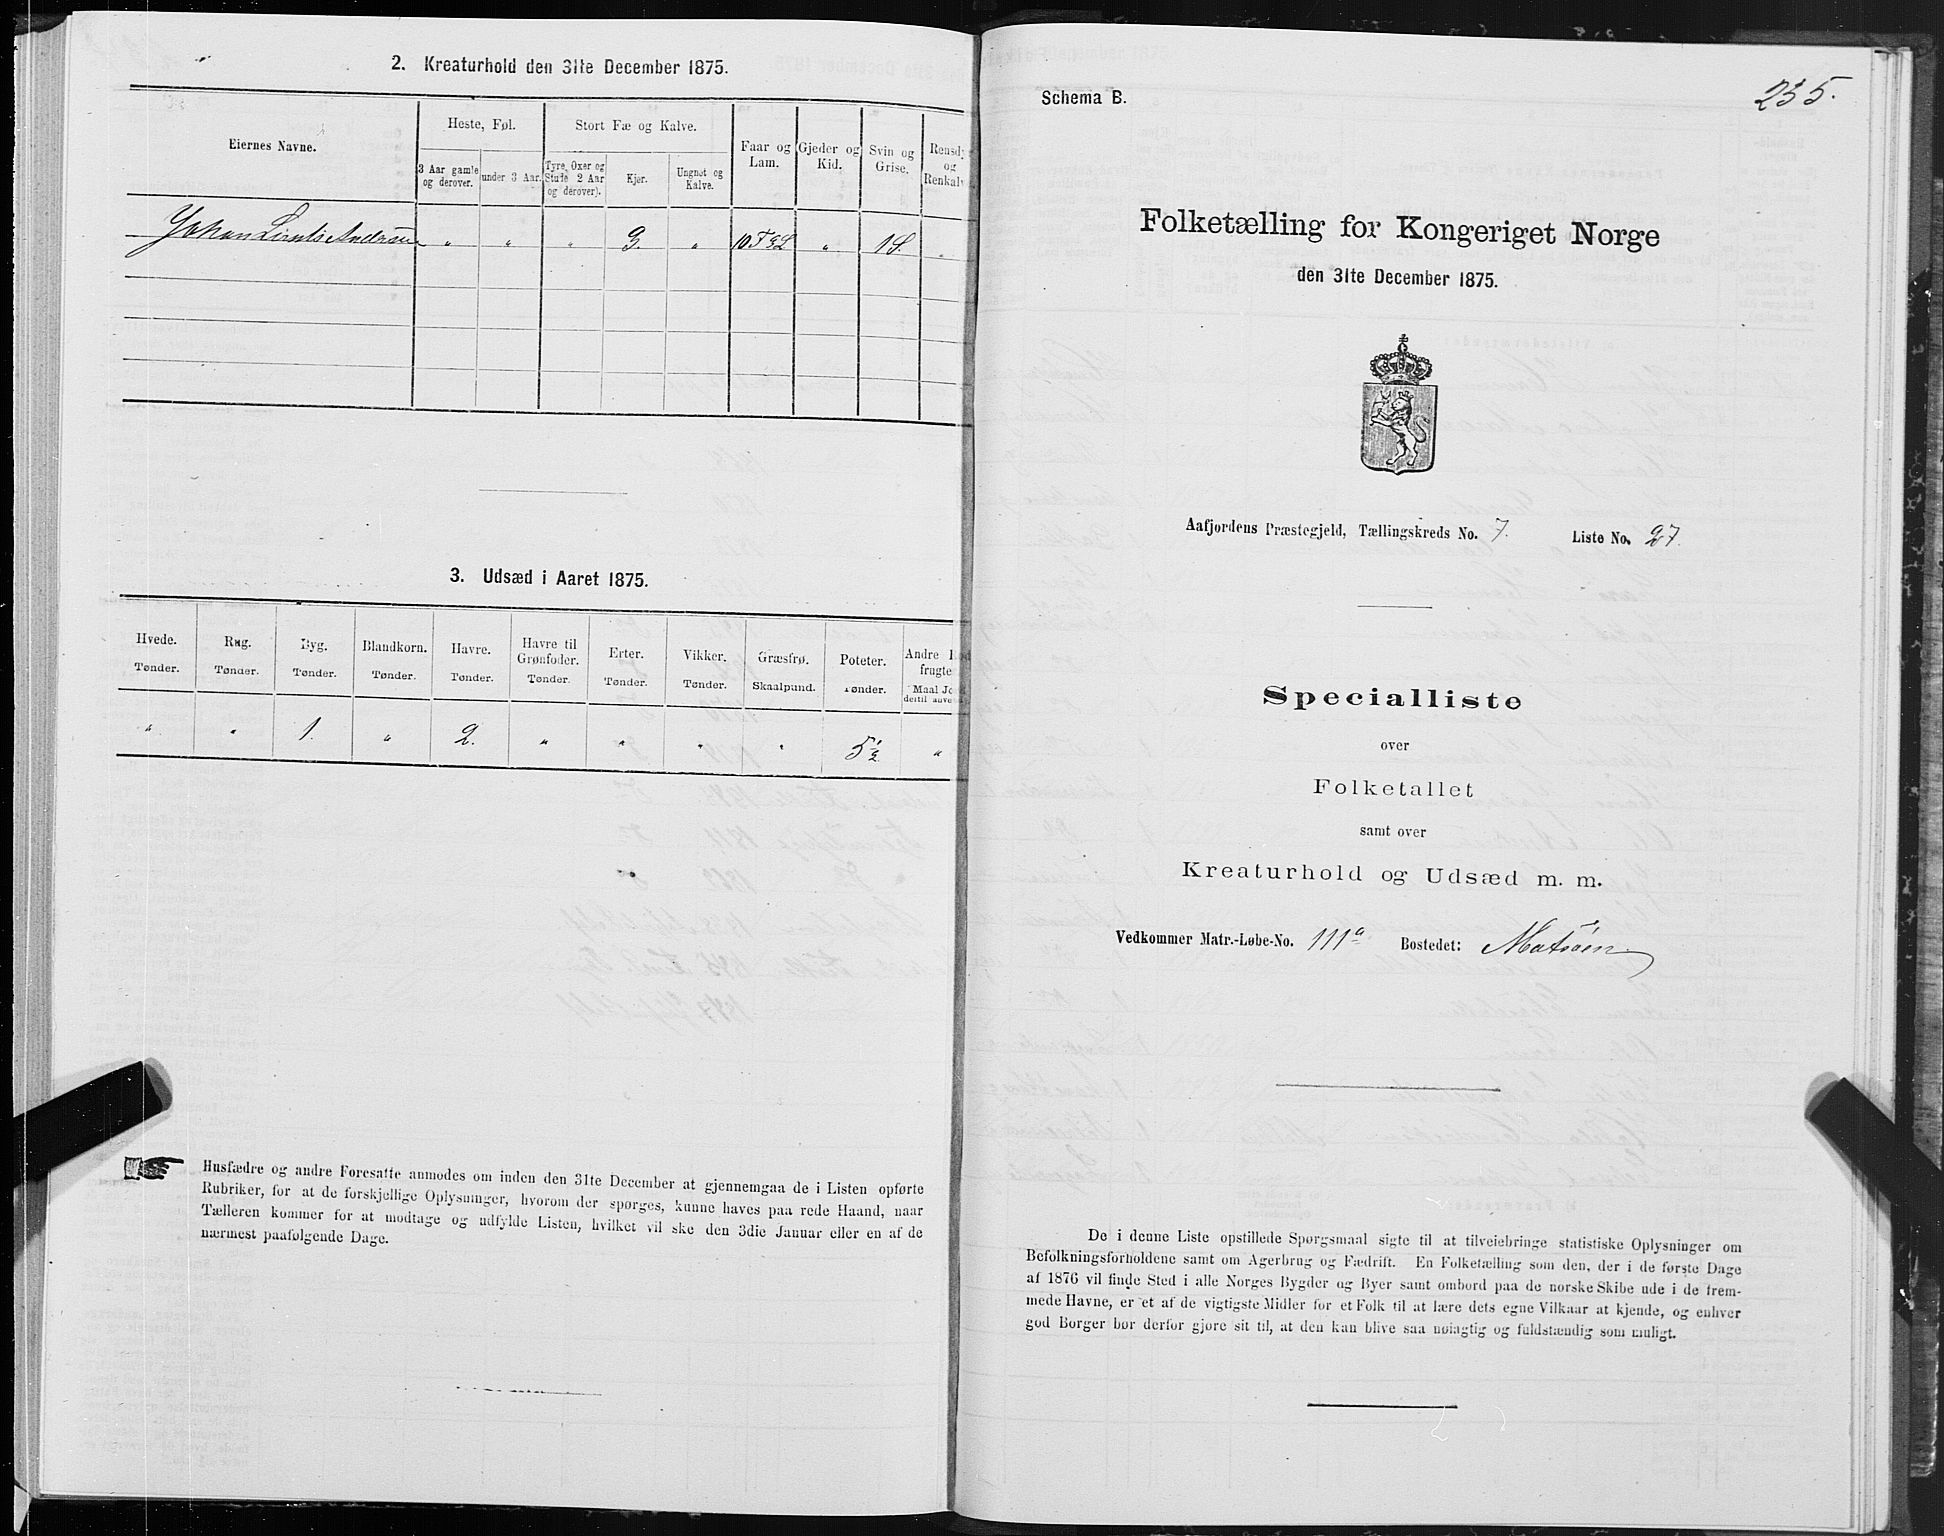 2. Kreaturhold den 31te December 1875.
Eiernes Navne.
Heste, Føl.
Stort Fæ og Kalve.
Faar og Lam.
Gjeder og Kid.
Svin og Grise.
Rensdy
og
Renkalv
3 Aar gamle og derover.
under 3 Aar.
Tyre, Oxer og Stude 2 Aar og derover).
Kjør.
Ungnøt og Kalve.
Johan Andersen " " " 3. " 10 F 3 L " 1 S. "
3. Udsæd i Aaret 1875.
Hvede. Rug. Byg. Blandkorn. Havre. Havre til Grønfoder. Erter. Vikker. Græsfrø. Poteter. Andre Rod
frugte
Tønder. Tønder. Tønder. Tønder. Tønder. Tønder. Tønder. Tønder. Skaalpund. Tønder. Maal Jo
destil anve
" " 1. " 2. " " " " 5½ "
Husfædre og andre Foresatte anmodes om inden den 31te December at gjennemgaa de i Listen opførte
Rubriker, for at de forskjellige Oplysninger, hvorom der spørges, kunne haves paa rede Haand, naar
Tælleren kommer for at modtage og udfylde Listen, hvilket vil ske den 3die Januar eller en af de
nærmest paafølgende Dage.
Schema B.
235.
Folketælling for Kongeriget Norge
den 31te December 1875.
Aafjordens Præstegjeld, Tællingskreds No. 7. Liste No. 27.
Specialliste
over
Folketallet
samt over
Kreaturhold og Udsæd m. m.
Vedkommer Matr.-Løbe-No. 111a Bostedet: Matsøen
De i denne Liste opstillede Spørgsmaal sigte til at tilveiebringe statistiske Oplysninger om
Befolkningsforholdene samt om Agerbrug og Fædrift. En Folketælling som den, der i de første Dage
af 1876 vil finde Sted i alle Norges Bygder og Byer samt ombord paa de norske Skibe ude i de frem-
mede Havne, er et af de vigtigste Midler for et Folk til at lære dets egne Vilkaar at kjende, og enhver
god Borger bør derfor gjøre sit til, at den kan blive saa nøiagtig og fuldstændig som muligt.